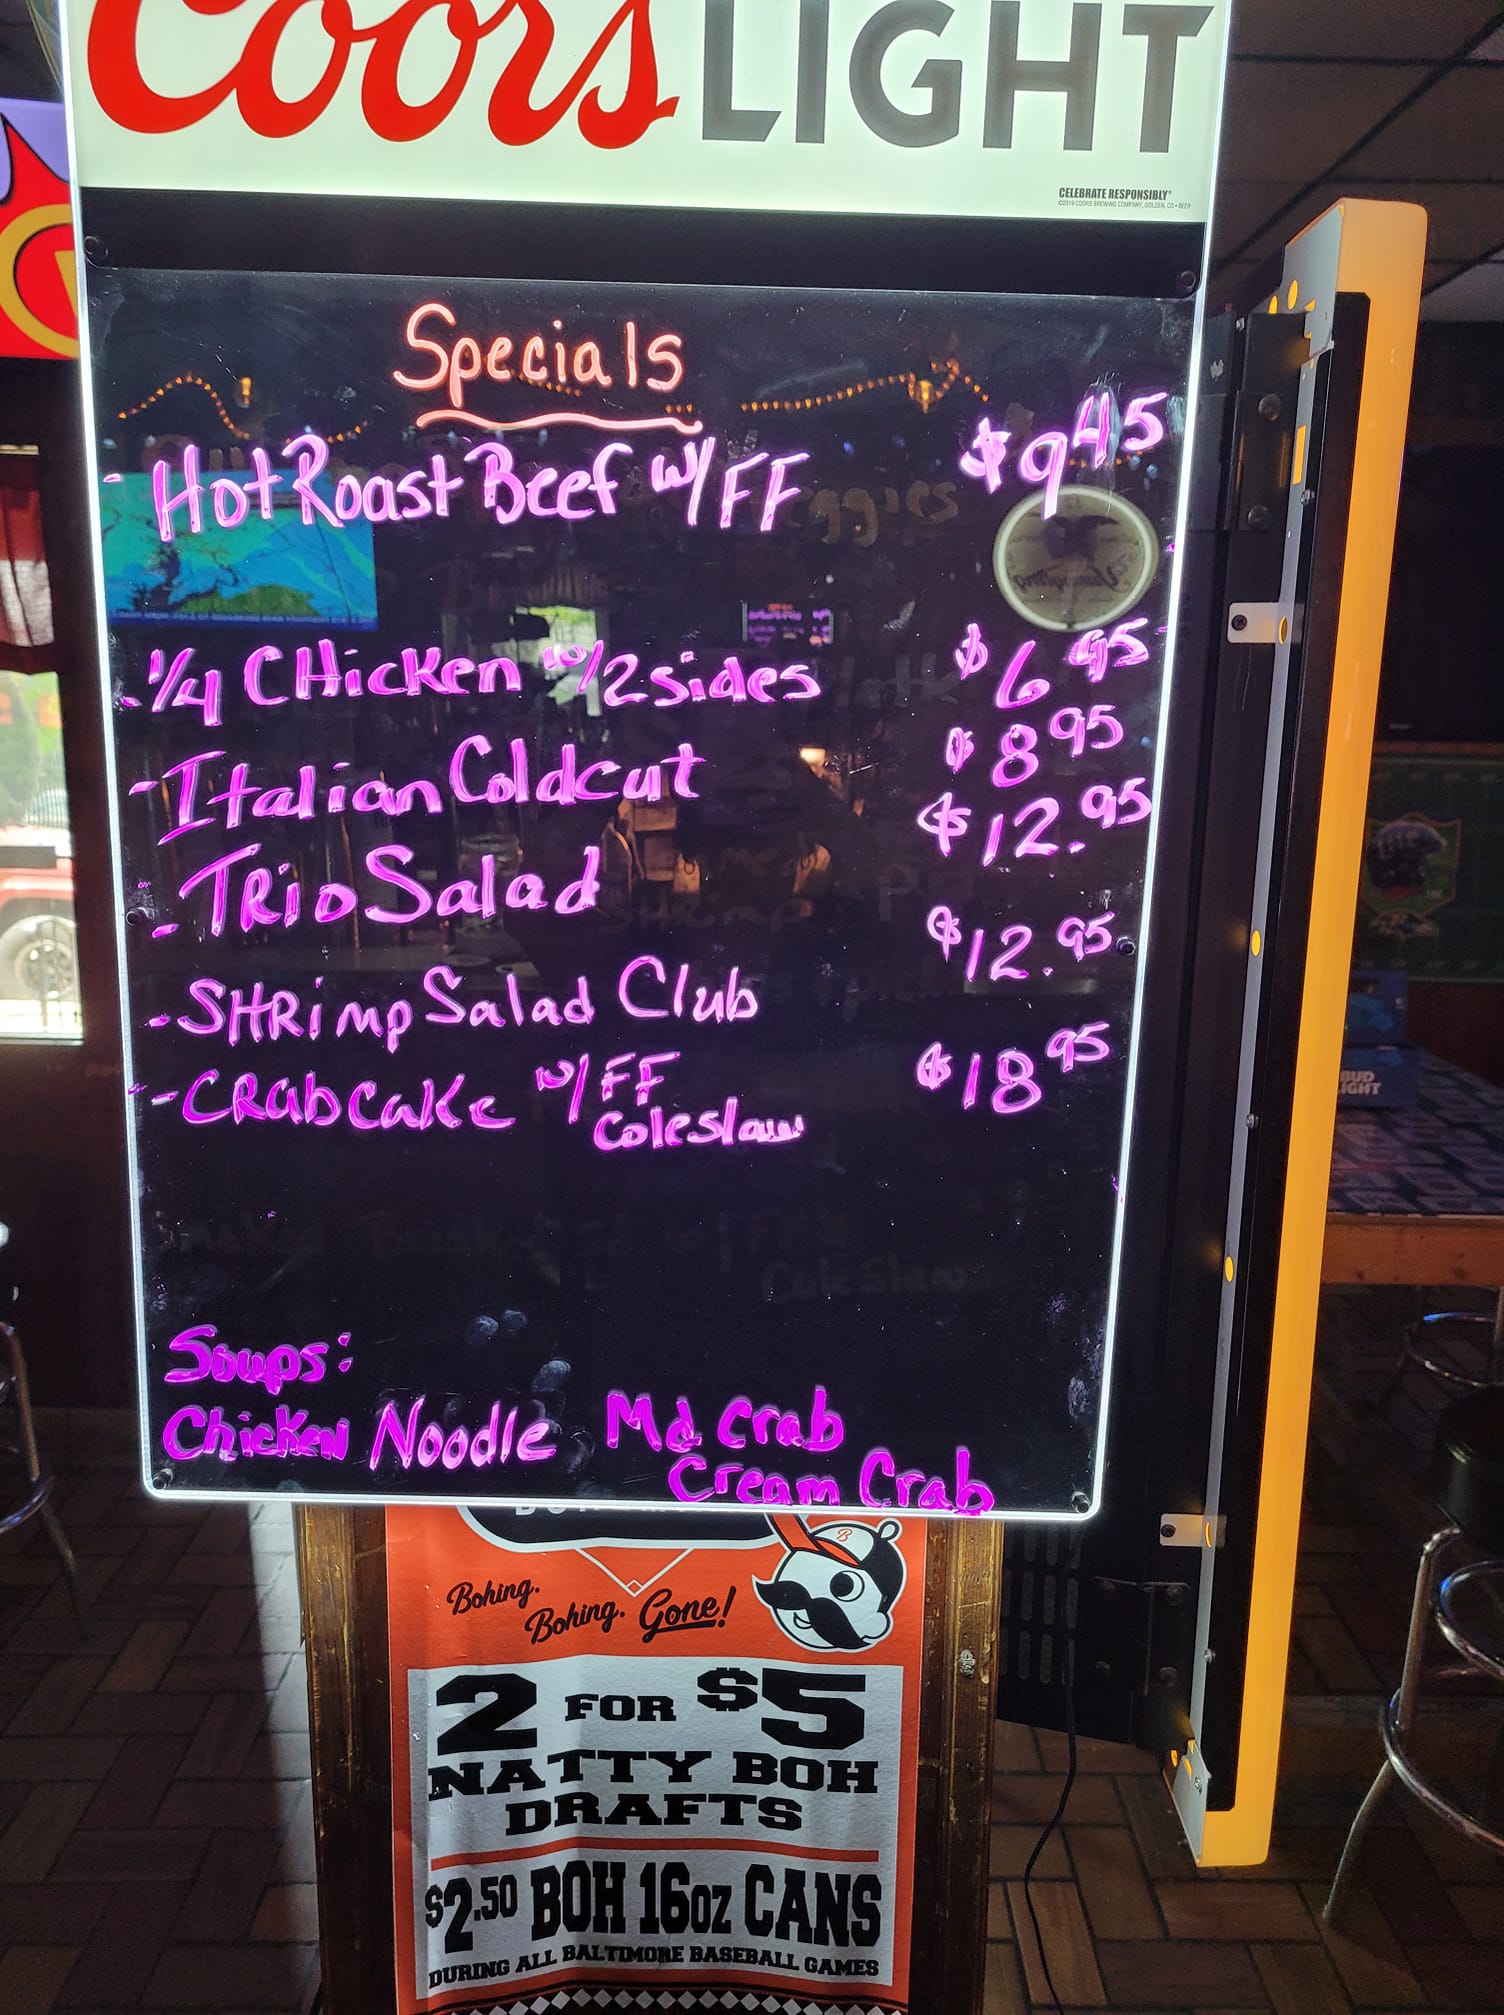 Coors LIGHT
CELEBRATE RESPONSIBLY®
©2019 COORS BREWING COMPANY, GOLDEN, CO • BEER
Specials
- Hot Roast Beef w/ FF $9 45
- 1/4 CHicken w/ 2 sides $6 95
- Italian Coldcut $8 95
- TRio Salad $12.95
- SHRimp Salad Club $12.95
- CRabcake w/ FF $18 95
Coleslaw
Soups:
Chicken Noodle Md Crab
Cream Crab
Bohing.
Bohing. Gone!
2 FOR $5
NATTY BOH
DRAFTS
$2.50 BOH 16OZ CANS
DURING ALL BALTIMORE BASEBALL GAMES
BUD
LIGHT